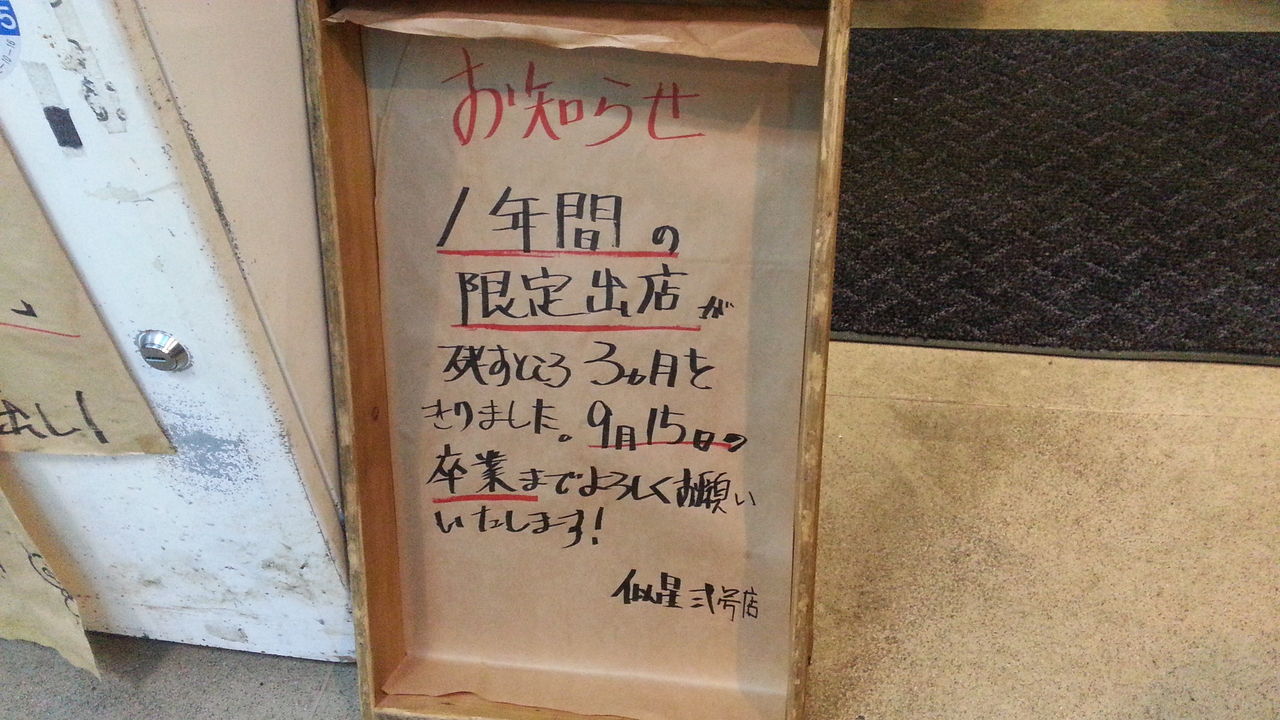 お知らせ
1年間の
限定出店が
残すところ3ヵ月を
きりました。9月15日の
卒業までよろしくお願い
いたします!
似星 弐号店